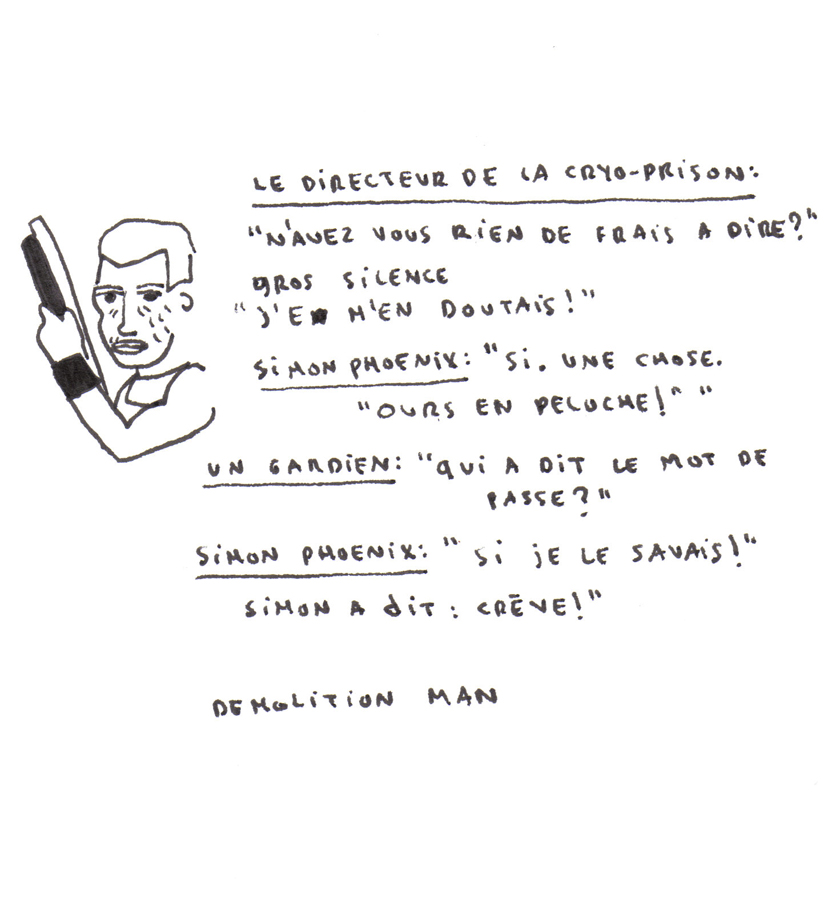 LE DIRECTEUR DE LA CRYO-PRISON:
"N'AVEZ VOUS RIEN DE FRAIS A DIRE?"
GROS SILENCE
"J'E M'EN DOUTAIS!"
SIMON PHOENIX: "SI. UNE CHOSE.
"OURS EN PELUCHE!" "
UN GARDIEN: "QUI A DIT LE MOT DE
PASSE?"
SIMON PHOENIX: " SI JE LE SAVAIS!"
SIMON A DIT : CRĒVE!"
DEMOLITION MAN